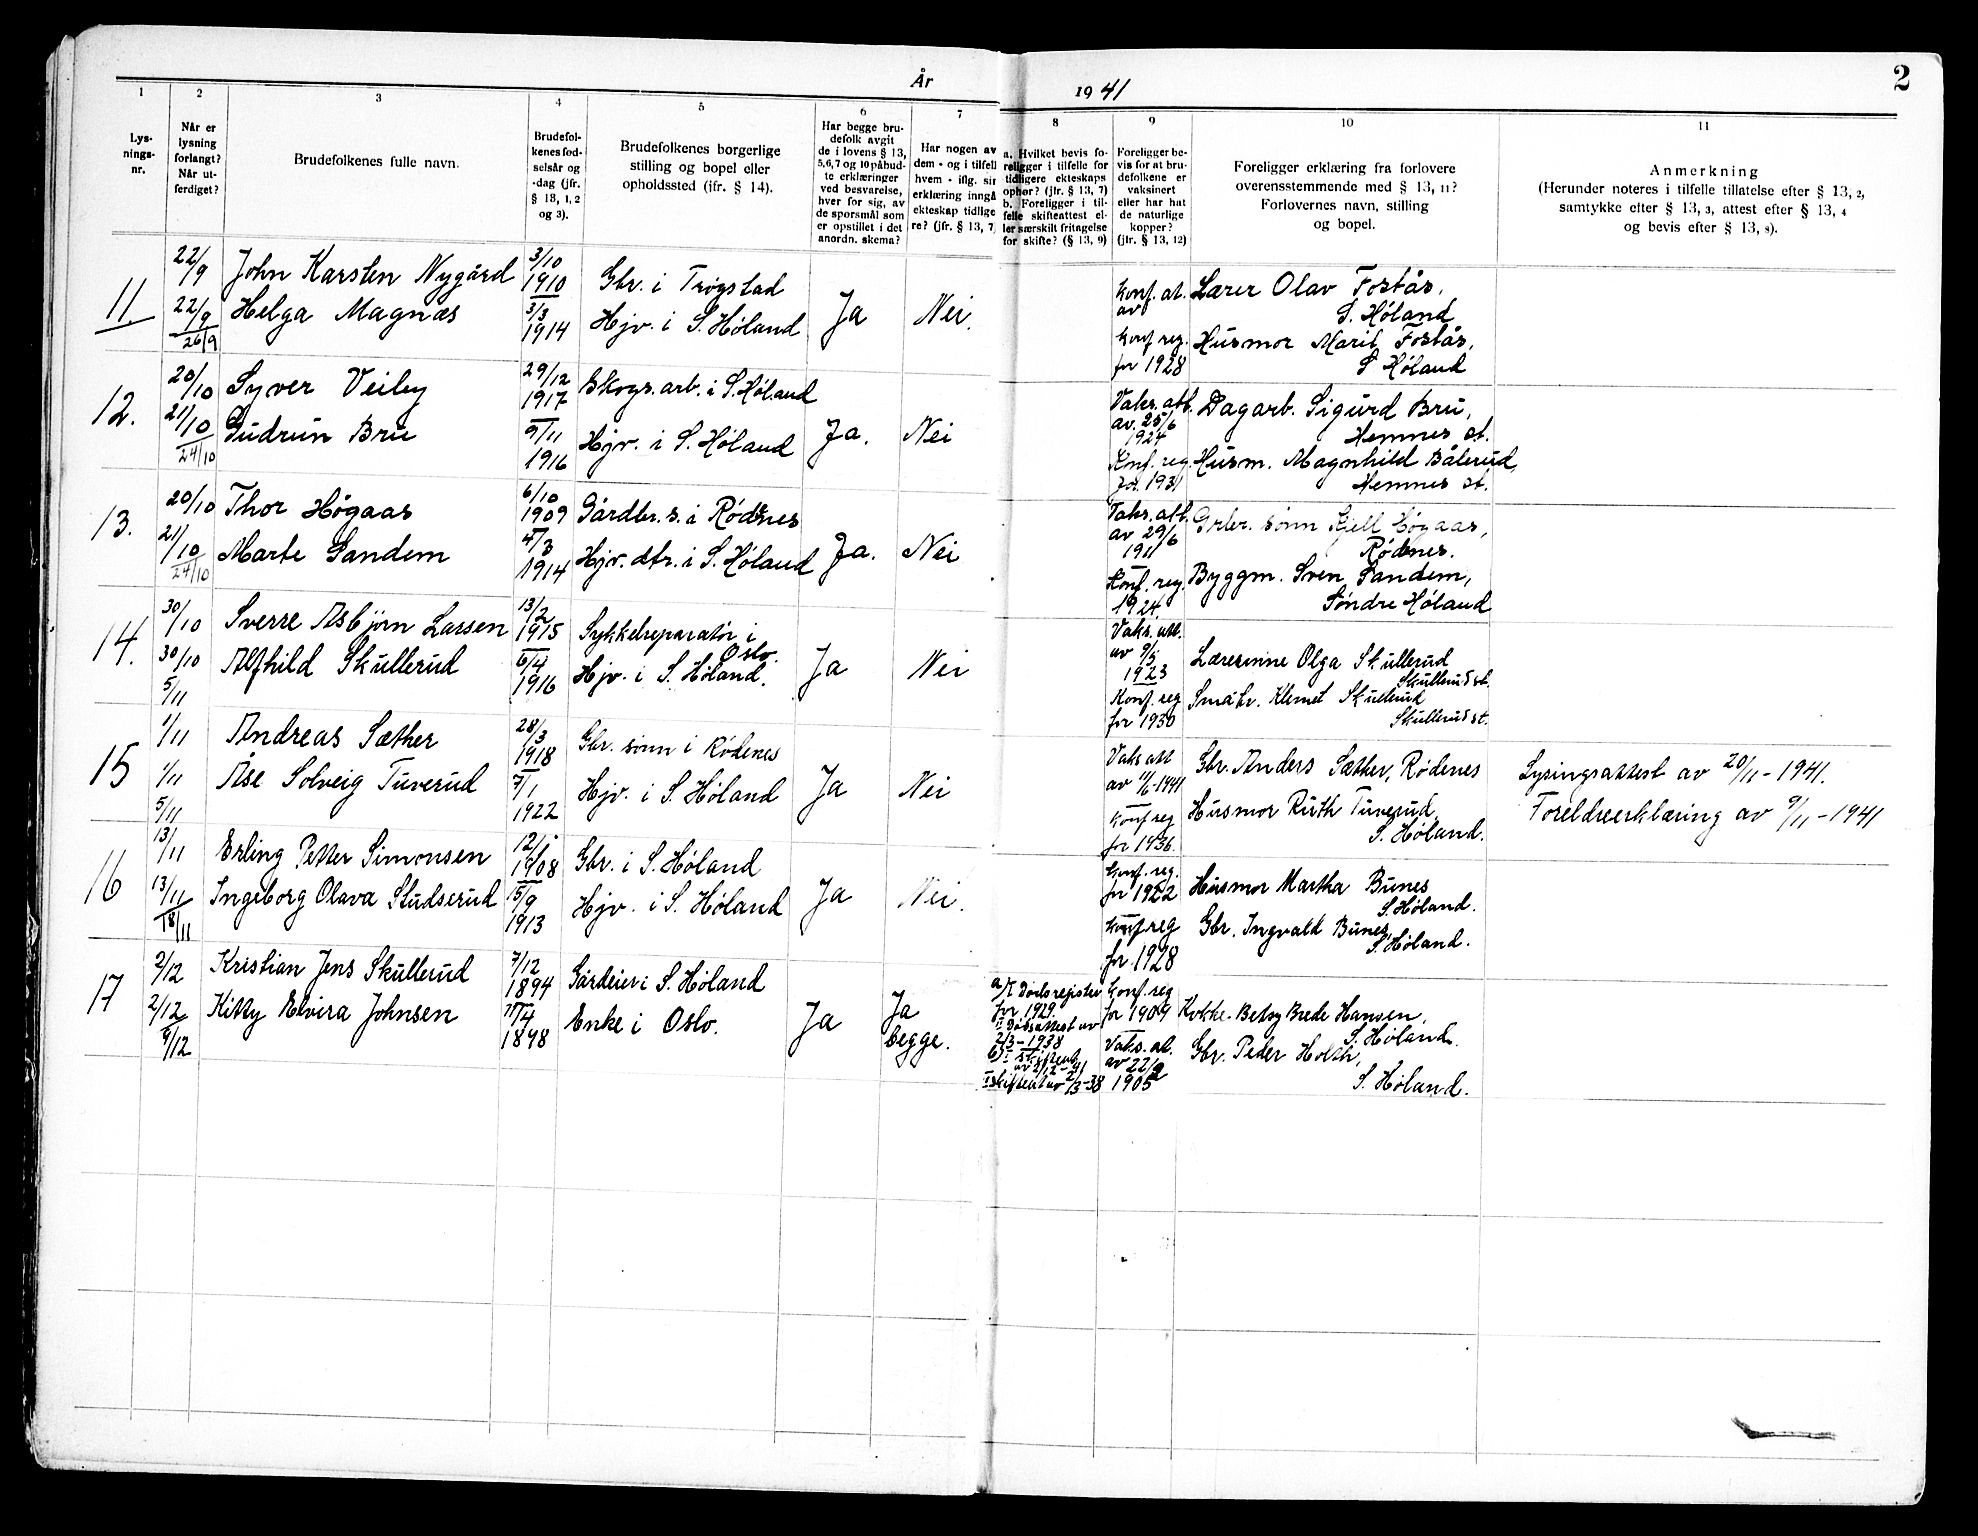 År 1941
2
1 2 3 4 5 6 7 8 9 10 11
Lys-
nings-
nr.
Når er
lysning
forlangt?
Når ut-
ferdiget?
Brudefolkenes fulle navn.
Brudefol-
kenes fød-
selsår og
-dag (jfr.
§ 13, 1, 2
og 3).
Brudefolkenes borgerlige
stilling og bopel eller
opholdssted (jfr. § 14).
Har begge bru-
defolk avgit
de i lovens § 13,
5,6,7 og 10 påbud-
te erklæringer
ved besvarelse,
hver for sig, av
de spørsmål som
er opstillet i det
anordn. skema?
Har nogen av
dem - og i tilfelle
hvem - iflg. sin
erklæring inngå
ekteskap tidlige
re? (jfr. § 13, 7)
a. Hvilket bevis fo-
religger i tilfelle for
tidligere ekteskaps
ophør? (jfr. § 13, 7)
b. Foreligger i til-
felle skifteattest el-
ler særskilt fritagelse
for skifte? (§ 13, 9)
Foreligger be-
vis for at bru-
defolkene er
vaksinert
eller har hat
de naturlige
kopper?
(jfr. § 13, 12)
Foreligger erklæring fra forlovere
overensstemmende med § 13, 11?
Forlovernes navn, stilling
og bopel.
Anmerkning
(Herunder noteres i tilfelle tillatelse efter § 13, 2,
samtykke efter § 13, 3, attest efter § 13, 4
og bevis efter § 13, 8).
11.
22/9
22/9
26/9
John Karsten Nygård
Helga Magnæs
3/10
1910
3/3
1914
Gbr. i Trøgstad
Hjv. i S. Høland
Ja
Nei.
Konf. at.
av
Konf reg.
for 1928
Lærer Olav Fostås,
S. Høland
Husmor Marit Fostås,
S Høland
12.
20/10
21/10
24/10
Syver Veiby
Gudrun Bru
29/12
1917
9/11
1916
Skogs.arb. i S. Høland
Hjv. i S. Høland
Ja.
Nei
Vaks. att.
av. 25/6
1924
Konf. reg.
for. 1931
Dagarb. Sigurd Bru,
Hemnes st.
Husm. Magnhild Bålerud,
Hemnes st.
13.
20/10
21/10
24/10
Thor Høgaas
Marte Sandem
6/10
1909
4/3
1914
Gårdbr. s. i Rødenes
Hjv. dtr. i S. Høland
Ja.
Nei
Vaks. att.
av 29/6
1911
Konf. reg.
1924.
Grbr. sønn Kjell Høgaas,
Rødenes.
Byggm. Sven Sandem,
Søndre Høland
14.
30/10
30/10
5/11
Sverre Asbjørn Larsen
Alfhild Skullerud
13/2
1915
6/4
1916
Sykkelreparatør i
Oslo.
Hjv. i S. Høland.
Ja
Nei
Vaks. att.
av 9/5
1923
Konf. reg
for 1930
Lærerinne Olga Skullerud
Skullerud st.
Småbr. Klemet Skullerud
Skullerud st.
15
1/11
1/11
5/11
Andreas Sæther
Åse Solveig Tuverud
28/3
1918
7/1
1922
Gbr. sønn i Rødenes
Hjv. i S. Høland
Ja
Nei
Vaks att
av 11/6-1941
Konf reg
for 1936.
Gbr. Anders Sæther, Rødenes
Husmor Ruth Tuverud,
S. Høland.
Lysingsattest av 20/11-1941.
Foreldreerklæring av 9/11-1941
16
13/11
13/11
18/11
Erling Petter Simonsen
Ingeborg Olava Studserud
12/1
1908
15/9
1913
Gbr. i S. Høland
Hjv. i S. Høland
Ja
Nei.
Konf. reg.
for 1922
Konf reg
for. 1928
Husmor Martha Bunes
S. Høland.
Gbr. Ingvald Bunes,
S. Høland.
17
2/12
2/12
9/12
Kristian Jens Skullerud
Kitty Elvira Johnsen
7/12
1894
11/4
1898
Gårdeier i S. Høland
Enke i Oslo.
Ja
Ja
begge.
a) Dødsregister
for 1929.
Dødsattest av
2/3-1938
b) Skifteatt.
av 2/12-41
skifteatt av 2/3-38
Konf. reg
for 1909
Vaks. at.
av 22/9
1905
Kokke. Betsy Brede Hansen,
S. Høland.
Gbr. Peder Holth,
S. Høland.